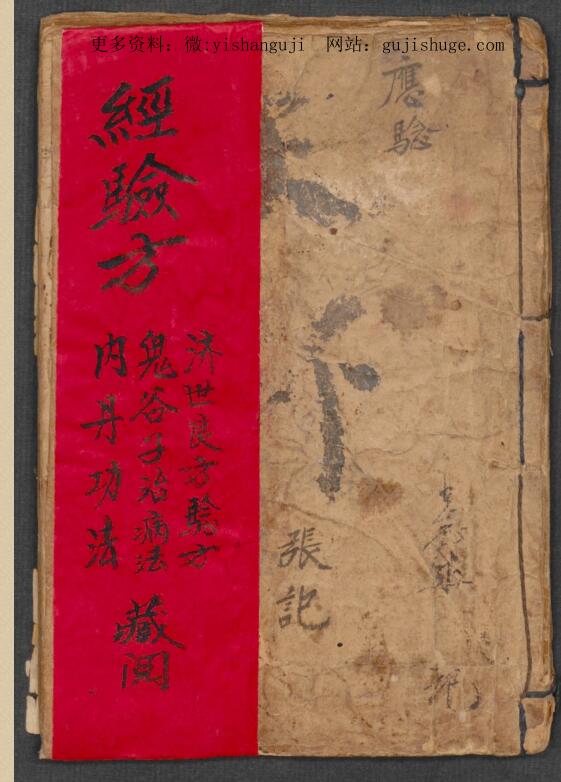 更多资料：微:yishanguji 网站：gujishuge.com
應驗
張記
經驗方
济世良方驗方
鬼谷子治病法
内丹功法
藏閲